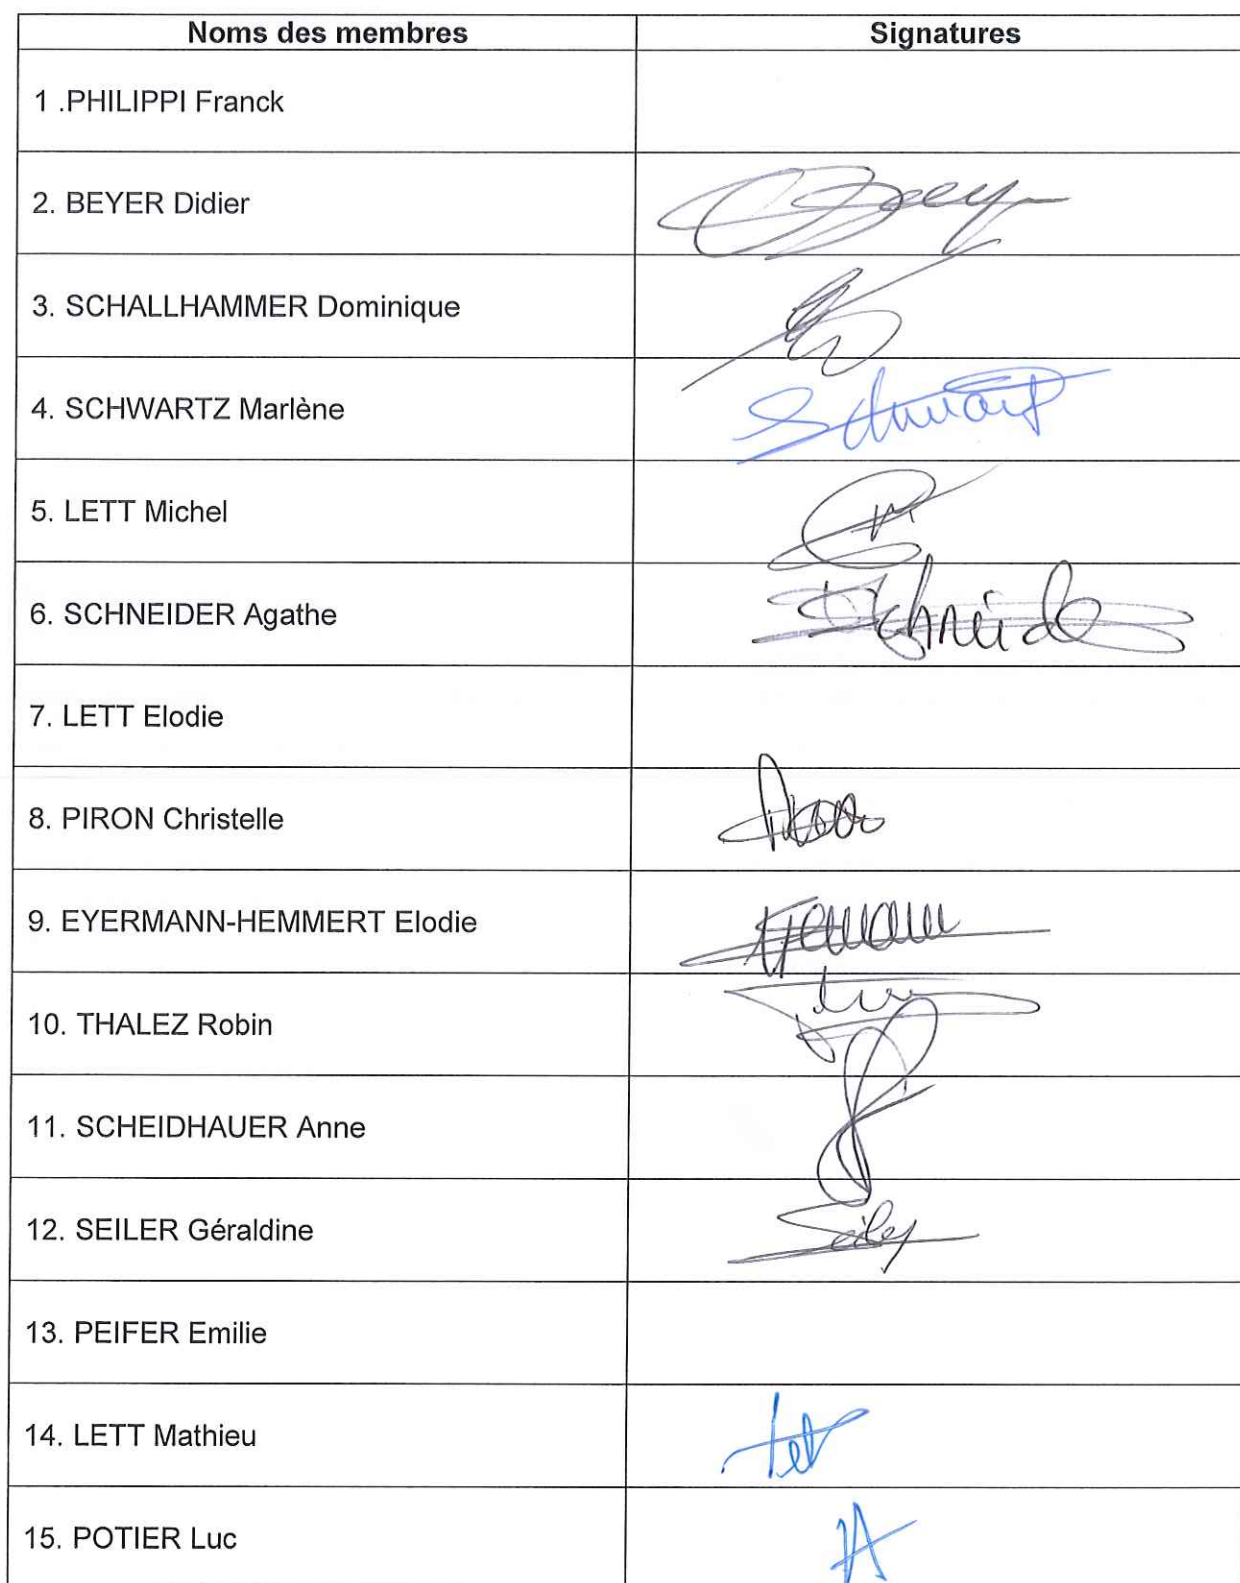 Noms des membres Signatures
1 .PHILIPPI Franck
2. BEYER Didier Beyer
3. SCHALLHAMMER Dominique
4. SCHWARTZ Marlène Schwartz
5. LETT Michel
6. SCHNEIDER Agathe Schneider
7. LETT Elodie
8. PIRON Christelle
9. EYERMANN-HEMMERT Elodie
10. THALEZ Robin
11. SCHEIDHAUER Anne
12. SEILER Géraldine Seiler
13. PEIFER Emilie
14. LETT Mathieu Lett
15. POTIER Luc